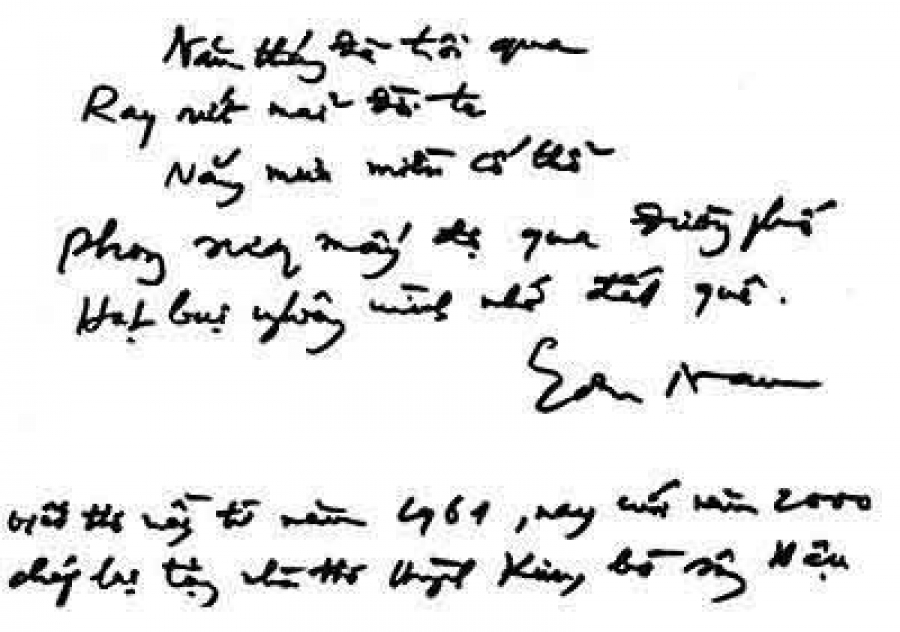 Năm tháng đã trôi qua
Ray rứt mãi đời ta
Nắng mưa miền cố thổ
Phong sương mấy độ qua đường phố
Hạt bụi nghiêng mình nhớ đất quê.
Sơn Nam
viết thơ nầy từ năm 1961, nay cuối năm 2000
chép lại tặng nhà thơ bờ sông Hậu